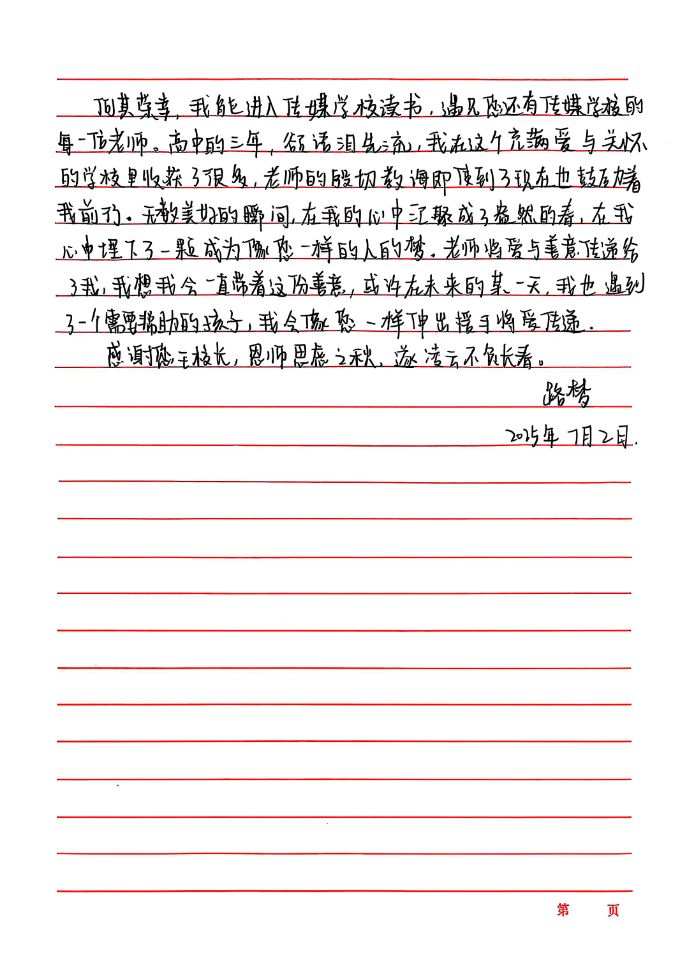 何其荣幸，我能进入传媒学校读书，遇见您还有传媒学校的
每一位老师。高中的三年，欲语泪先流，我在这个充满爱与关怀
的学校里收获了很多，老师的殷切教诲即使到了现在也鼓励着
我前行。无数美好的瞬间，在我的心中汇聚成了盎然的春，在我
心中埋下了一颗成为像您一样的人的梦。老师将爱与善意传递给
了我，我想我会一直带着这份善意，或许在未来的某一天，我也遇到
了一个需要帮助的孩子，我会像您一样伸出援手将爱传递.
感谢您王校长，恩师思感之秋，遂凌云不负长春。
路梦
2025年7月2日.
第 页